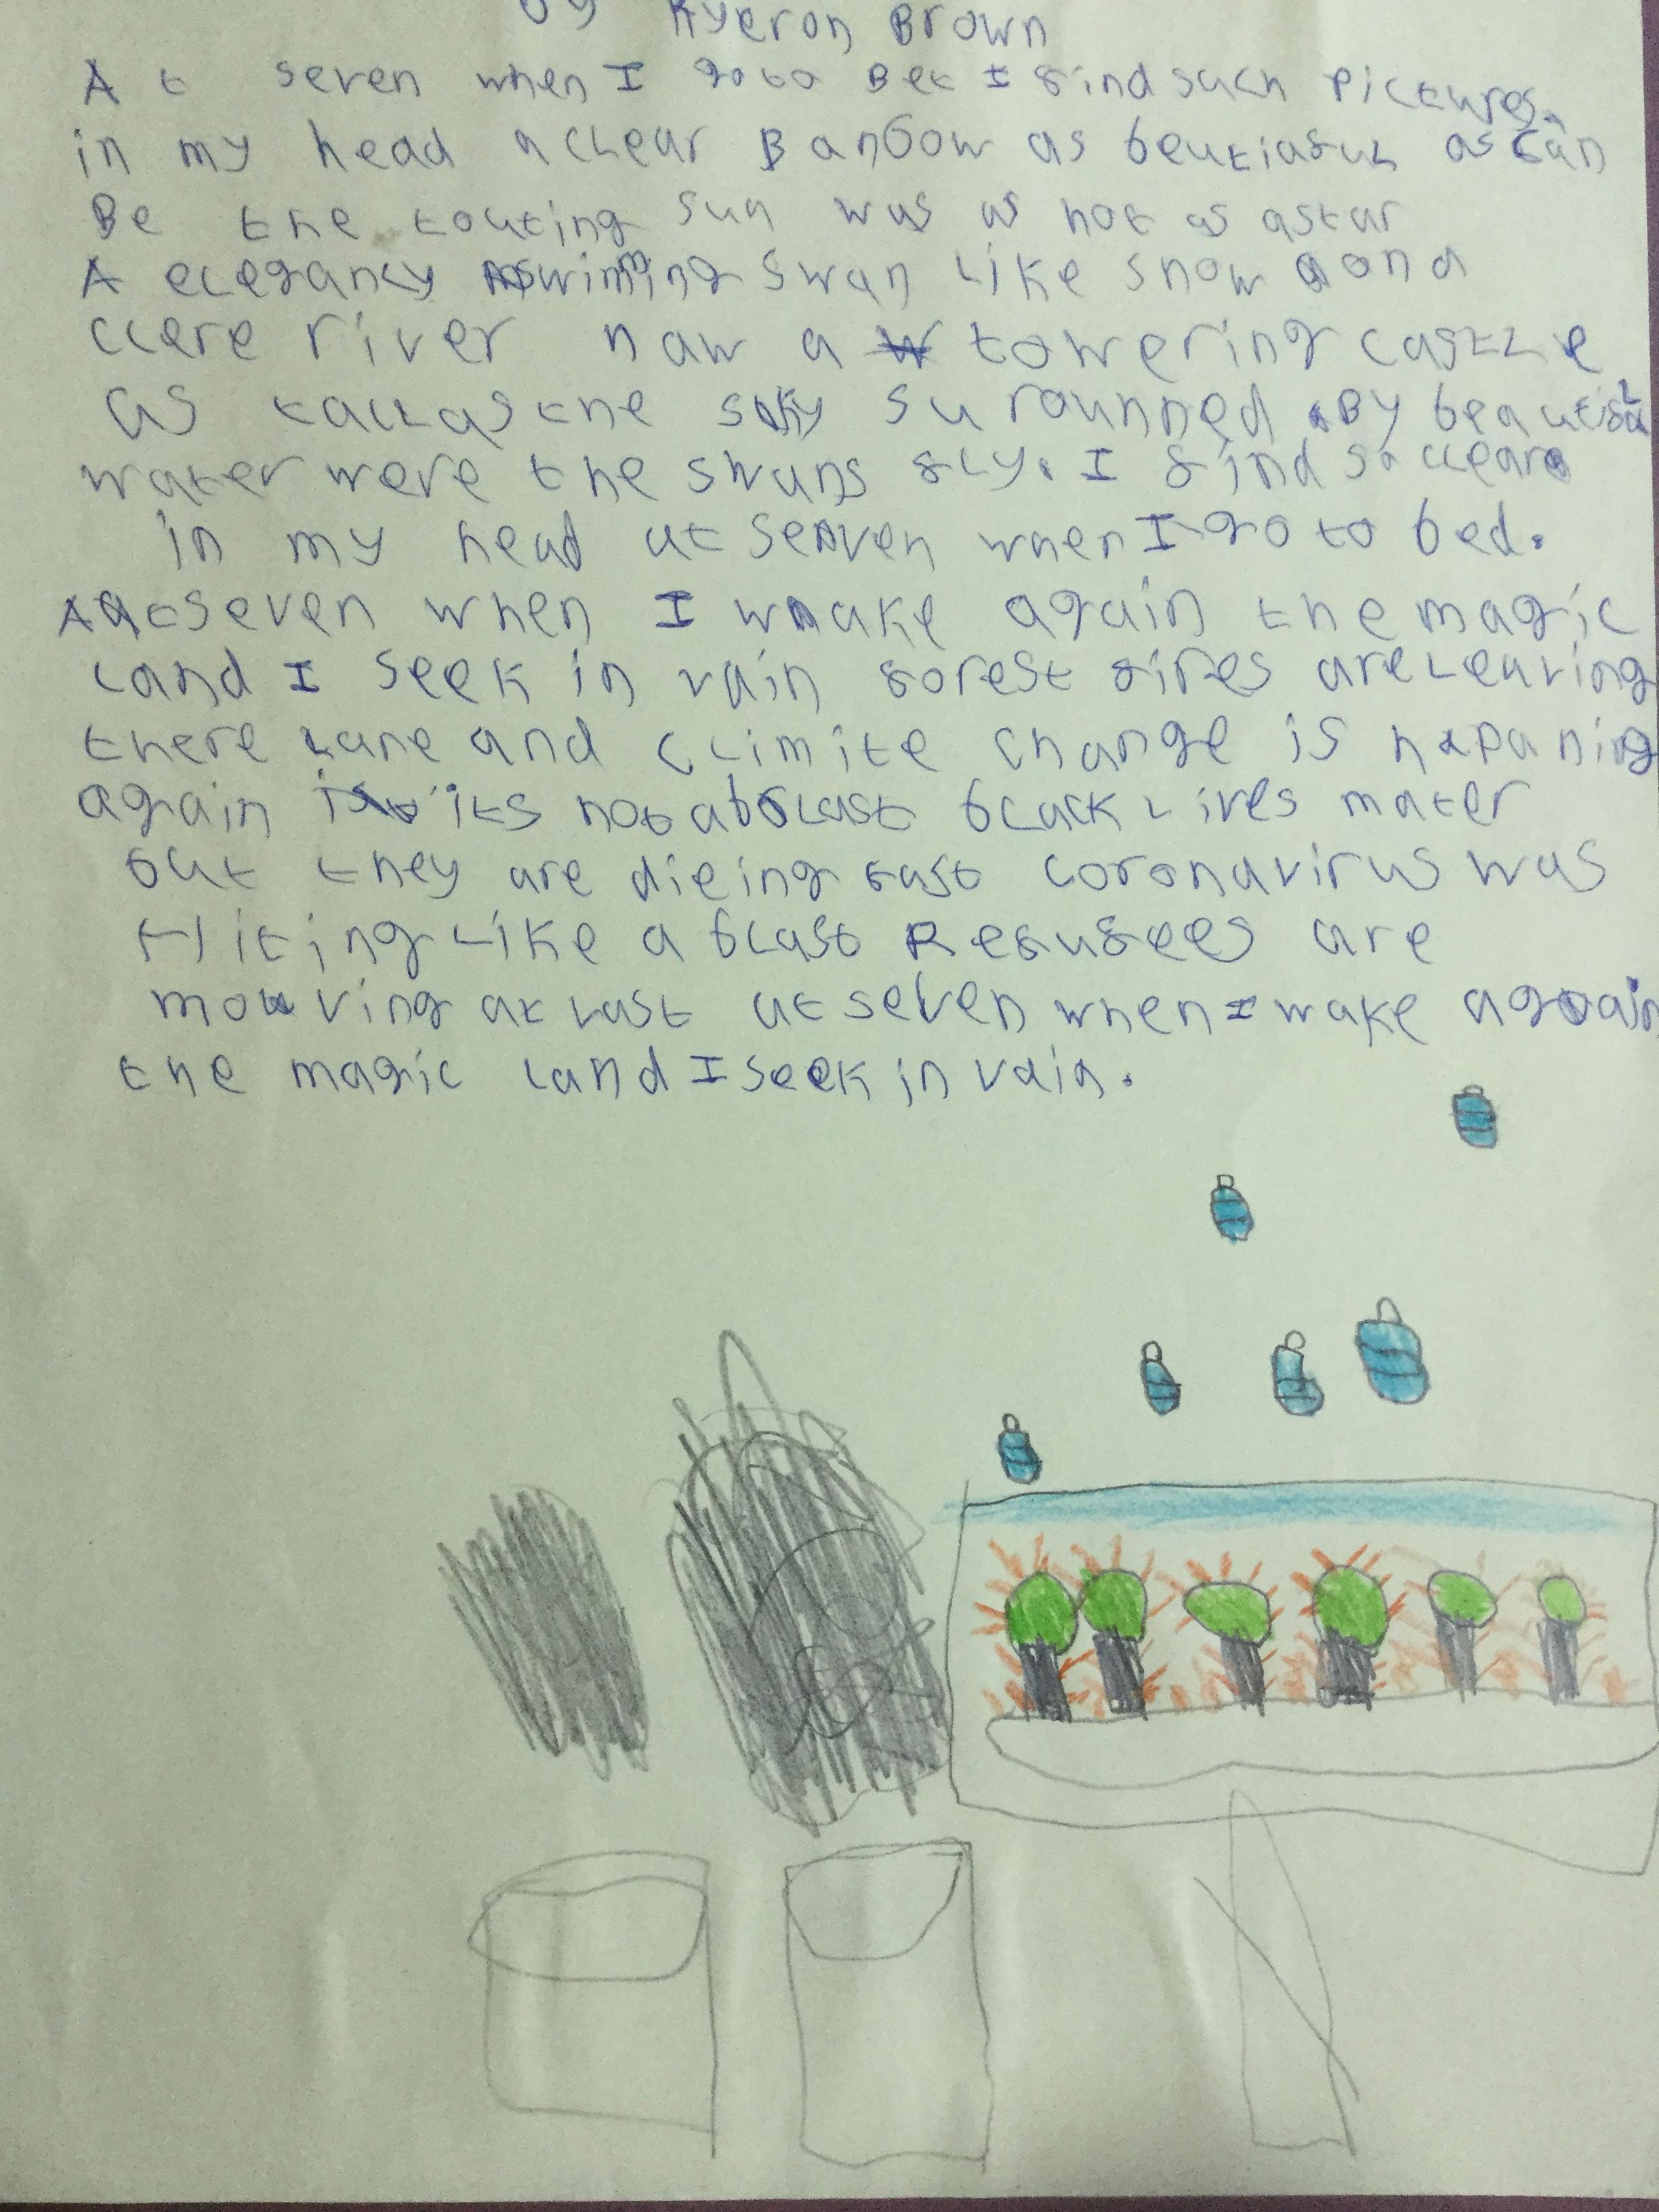 by Kyeron Brown
At seven when I go to Bet I find such pictures
in my head a clear Banbow as beutiaful as can
Be the touting sun was as hot as a star
A elegancy swimming swan like snow on a
clere river naw a towering castle
as tall as the sky surounned By beautiful
water were the swans fly. I find so clear
in my head at seaven when I go to bed.
At seven when I wake again the magic
land I seek in vain forest fires are leaving
there lane and climite change is hapaning
again its not a blast black lives mater
but they are dieing fast coronavirus was
Hiting like a blast Refufees are
moving at last at seven when I wake again
the magic land I seek in vain.